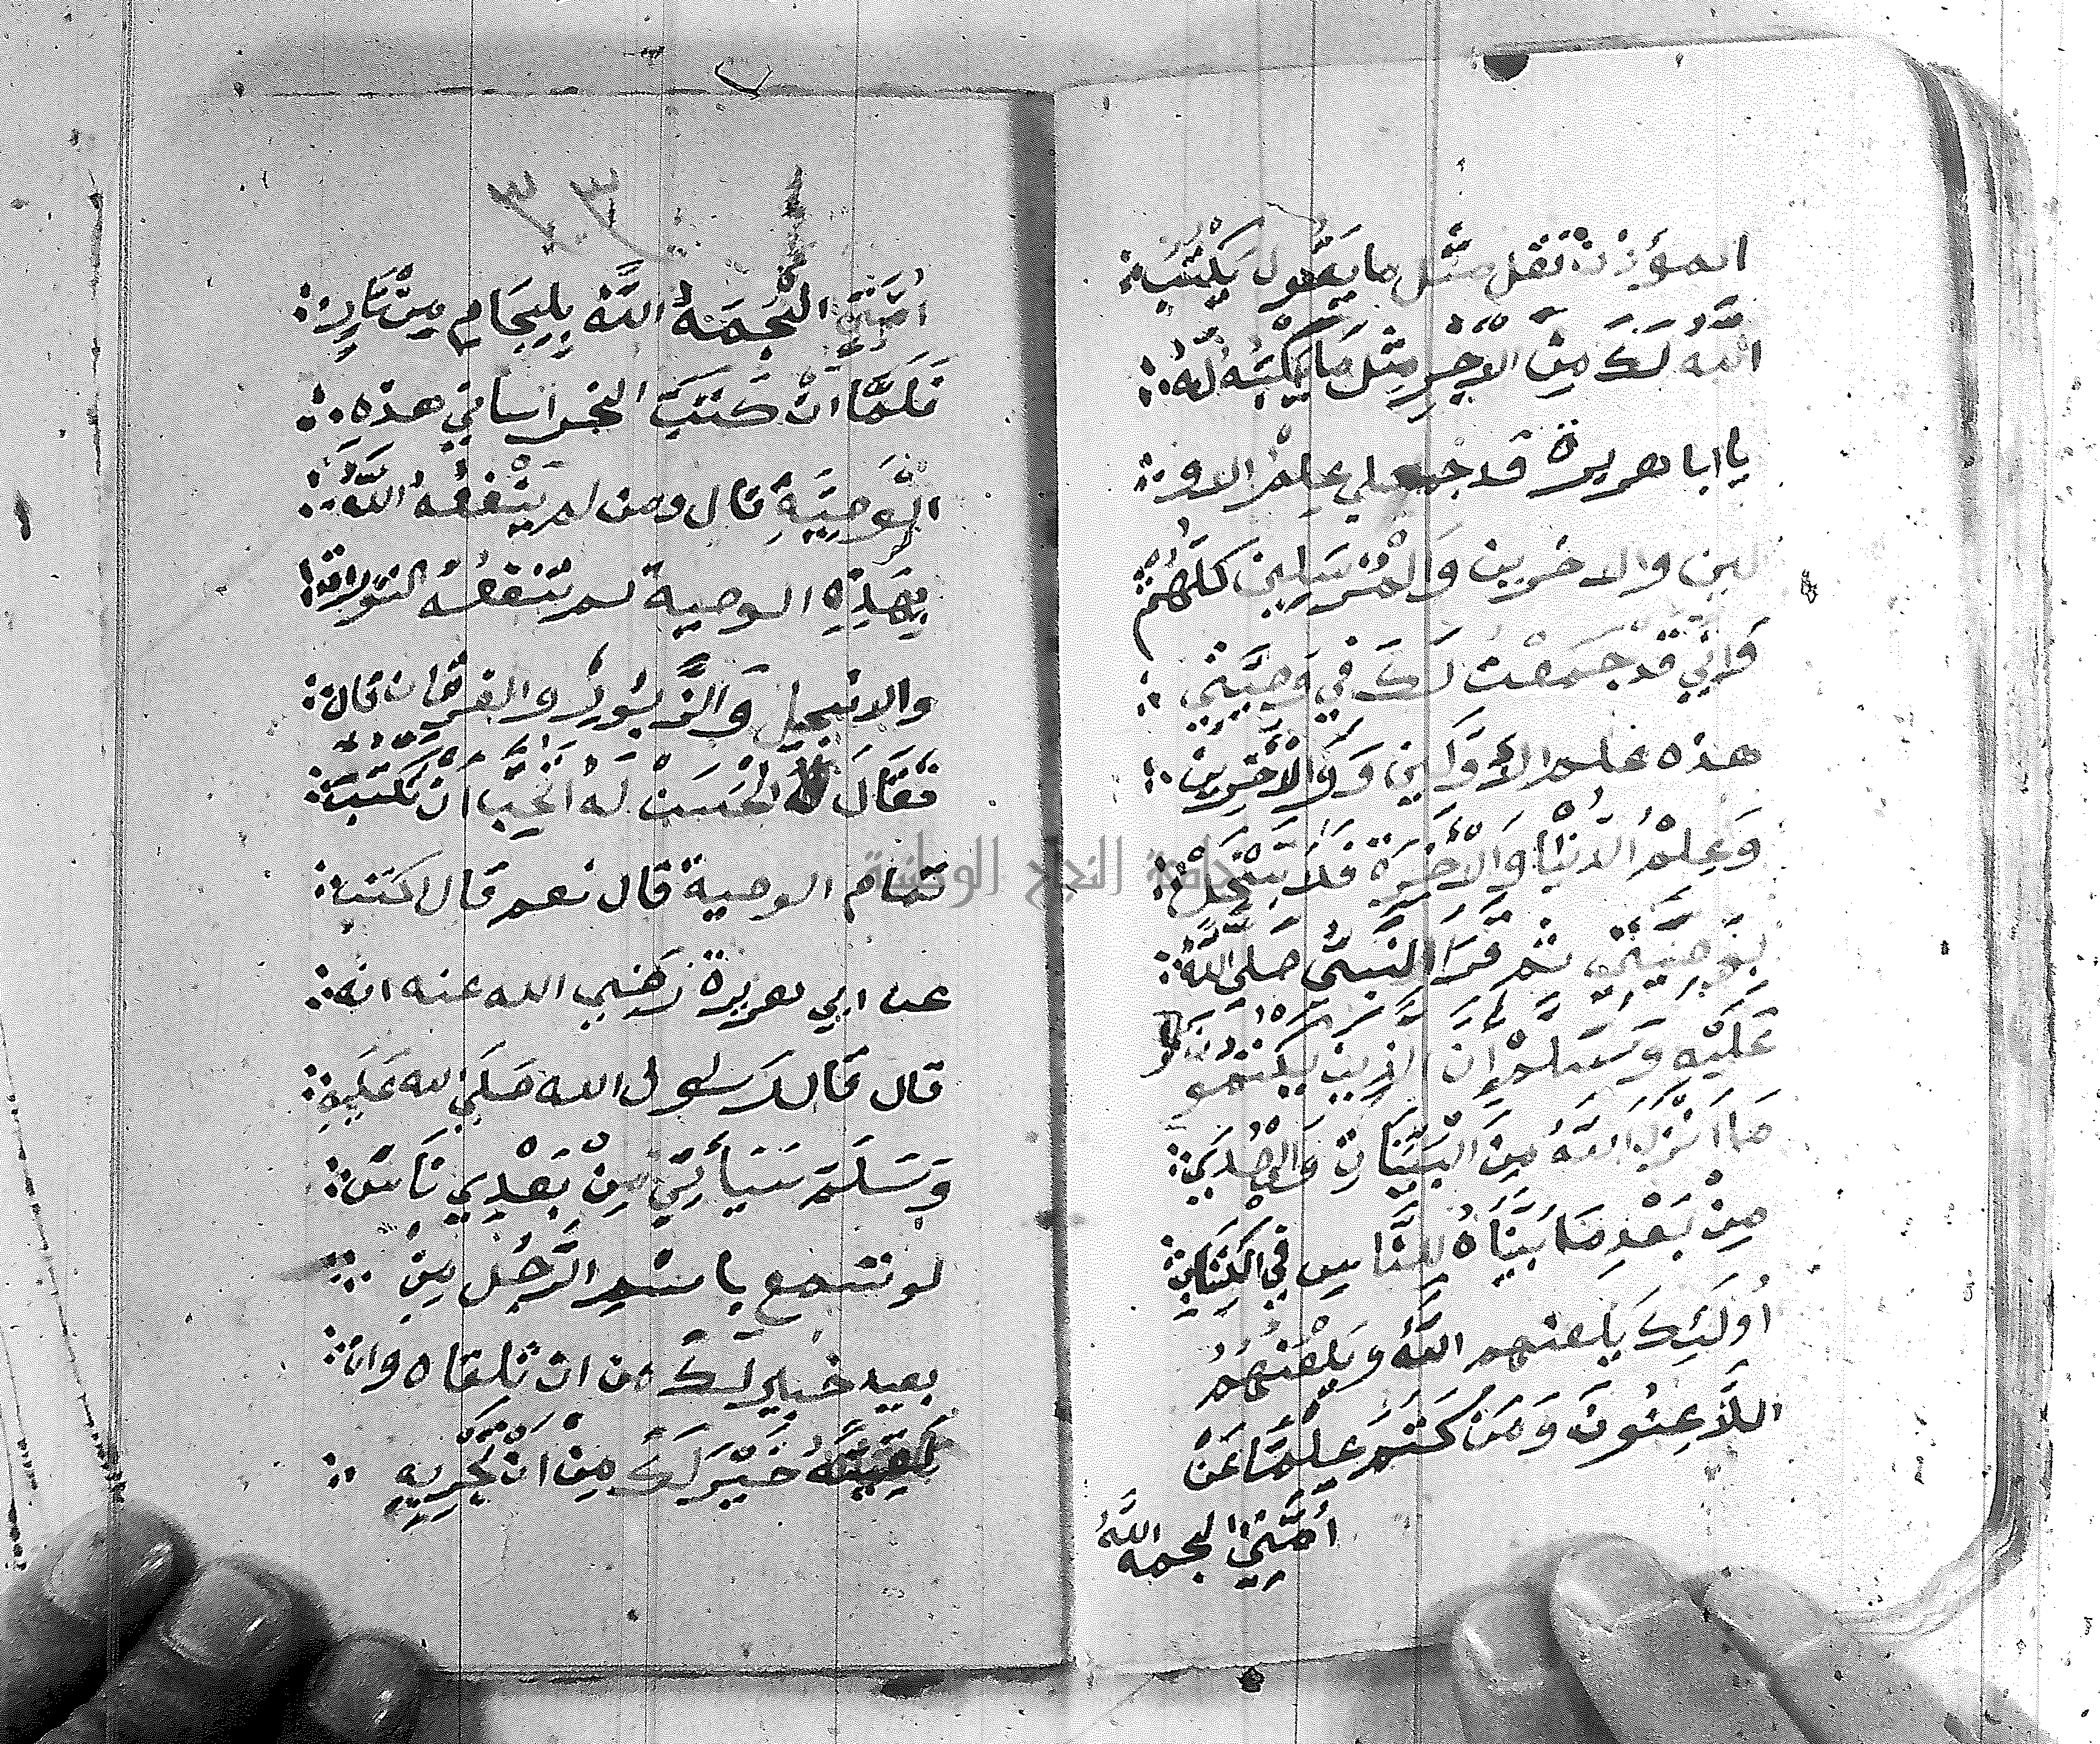 المؤذن فقل مثل ما يقول يكتب
اللّه لَكَ مِنَ الاَجْرِ مِثْلَ مَا يَكْتُبُه لَهُ
يا ابا هريرة قد جمع لي علم الاو
لين والاخرين وَالْمُرْسَلِين كلهُمْ
فَاِنِّي قد جَمَعْت لَكَ فِي وَصِيَّتِي
هذه علم الاَوَّلِين وَ وَالاَخَرِين
وَعِلْمُ الدُّنْيَا وَالاَخِرَة فَلَا تَبْخَلْ
بِوَصِيَّتِي ثم قَرَا النَّبِي صَلى اللّهُ
عَلَيْهِ وَسَلم اِن الذين يَكْتُمُونَ
مَا اَنْزَلَ اللّهُ مِنَ الْبَيِّنَاتِ وَالْهُدَي
مِنْ بَعْدِ مَا بَيَّنَاهُ للنَّاسِ فِي الْكِتَابِ
اُولَئِكَ يَلعنهم اللّهُ وَيَلْعَنُهُمُ
اللَّاعِنُونَ وَمَن كَتَمَ عِلْمًا عَنْ
أُمَّتِي الجمه اللّهُ
٣٣
اُمَّتِي الْجَمَهُ اللَّهُ بِلِجَامٍ مِنْ نَارٍ
فَلَمَّا انْ كَتَبَ الخراساني هذه
الْوَصِيَّةِ قال ومن لم يَنْفَعُهُ اللَّهُ
بِهَذِهِ الوصية لم تنفعُهُ التوراة
والانجيل وَالزَّبُورُ والفرقان قال
فَقَالَ لهُ الحْسَنْ لَهُ اتُحِبُّ اَنْ نكتب
تمام الوصية قال نعم قال اكتب
عن ابي هريرة رَضي الله عنه انه
قال قال رسول الله صَلَي الله عَلَيهِ
وَسَلَّمَ سَيَأتِي مِنْ بَعْدِي نَاسٌ
لو تسمع باسْمِ الرَّجُل مِنْ
بعيد خير لك من ان تلقاه وان
لَقِيتَهُ خَيْر لَكَ مِنْ اَنْ تُجَرِبهِ
جامعة النجاح الوطنية